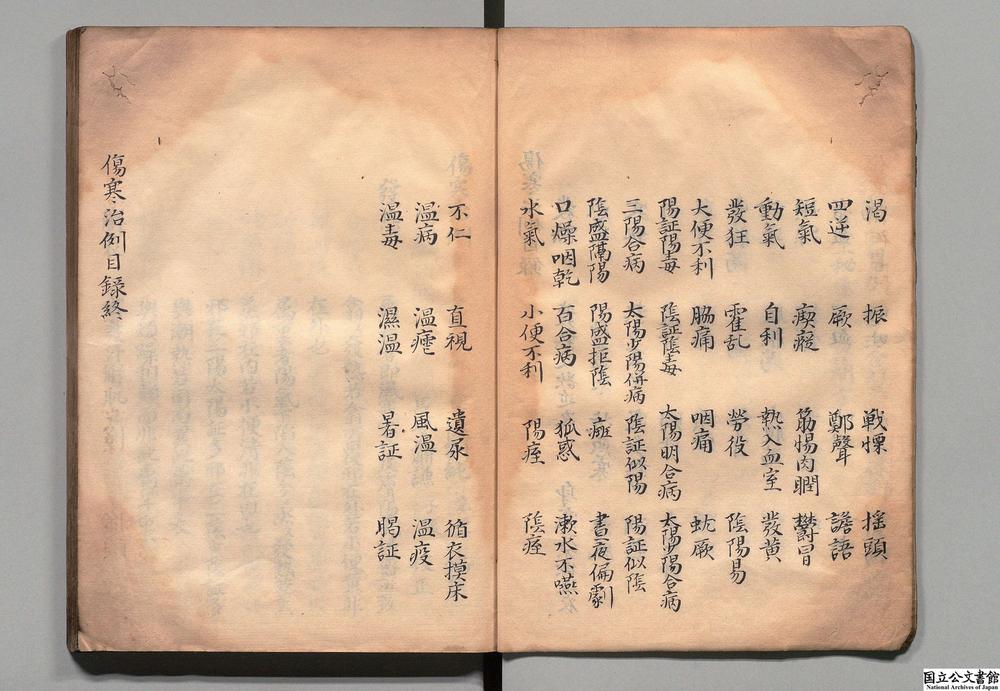 渇 振 戦慄 揺頭
四逆 厥 鄭聲 譫語
短氣 瘈瘲 筋惕肉瞤 欝冒
動氣 自利 熱入血室 發黄
發狂 霍乱 勞役 陰陽易
大便不利 脇痛 咽痛 蚘厥
陽証陽毒 陰証陰毒 太陽明合病 太陽少陽合病
三陽合病 太陽少陽併病 陰証似陽 陽証似陰
陰盛隔陽 陽盛拒陰 痓 晝夜偏劇
口燥咽乾 百合病 狐惑 漱水不嚥
水氣 小便不利 陽痓 陰痓
不仁 直視 遺尿 循衣摸床
温病 温瘧 風温 温疫
温毒 濕温 暑証 暍証
傷寒治例目録終
国立公文書館
National Archives of Japan